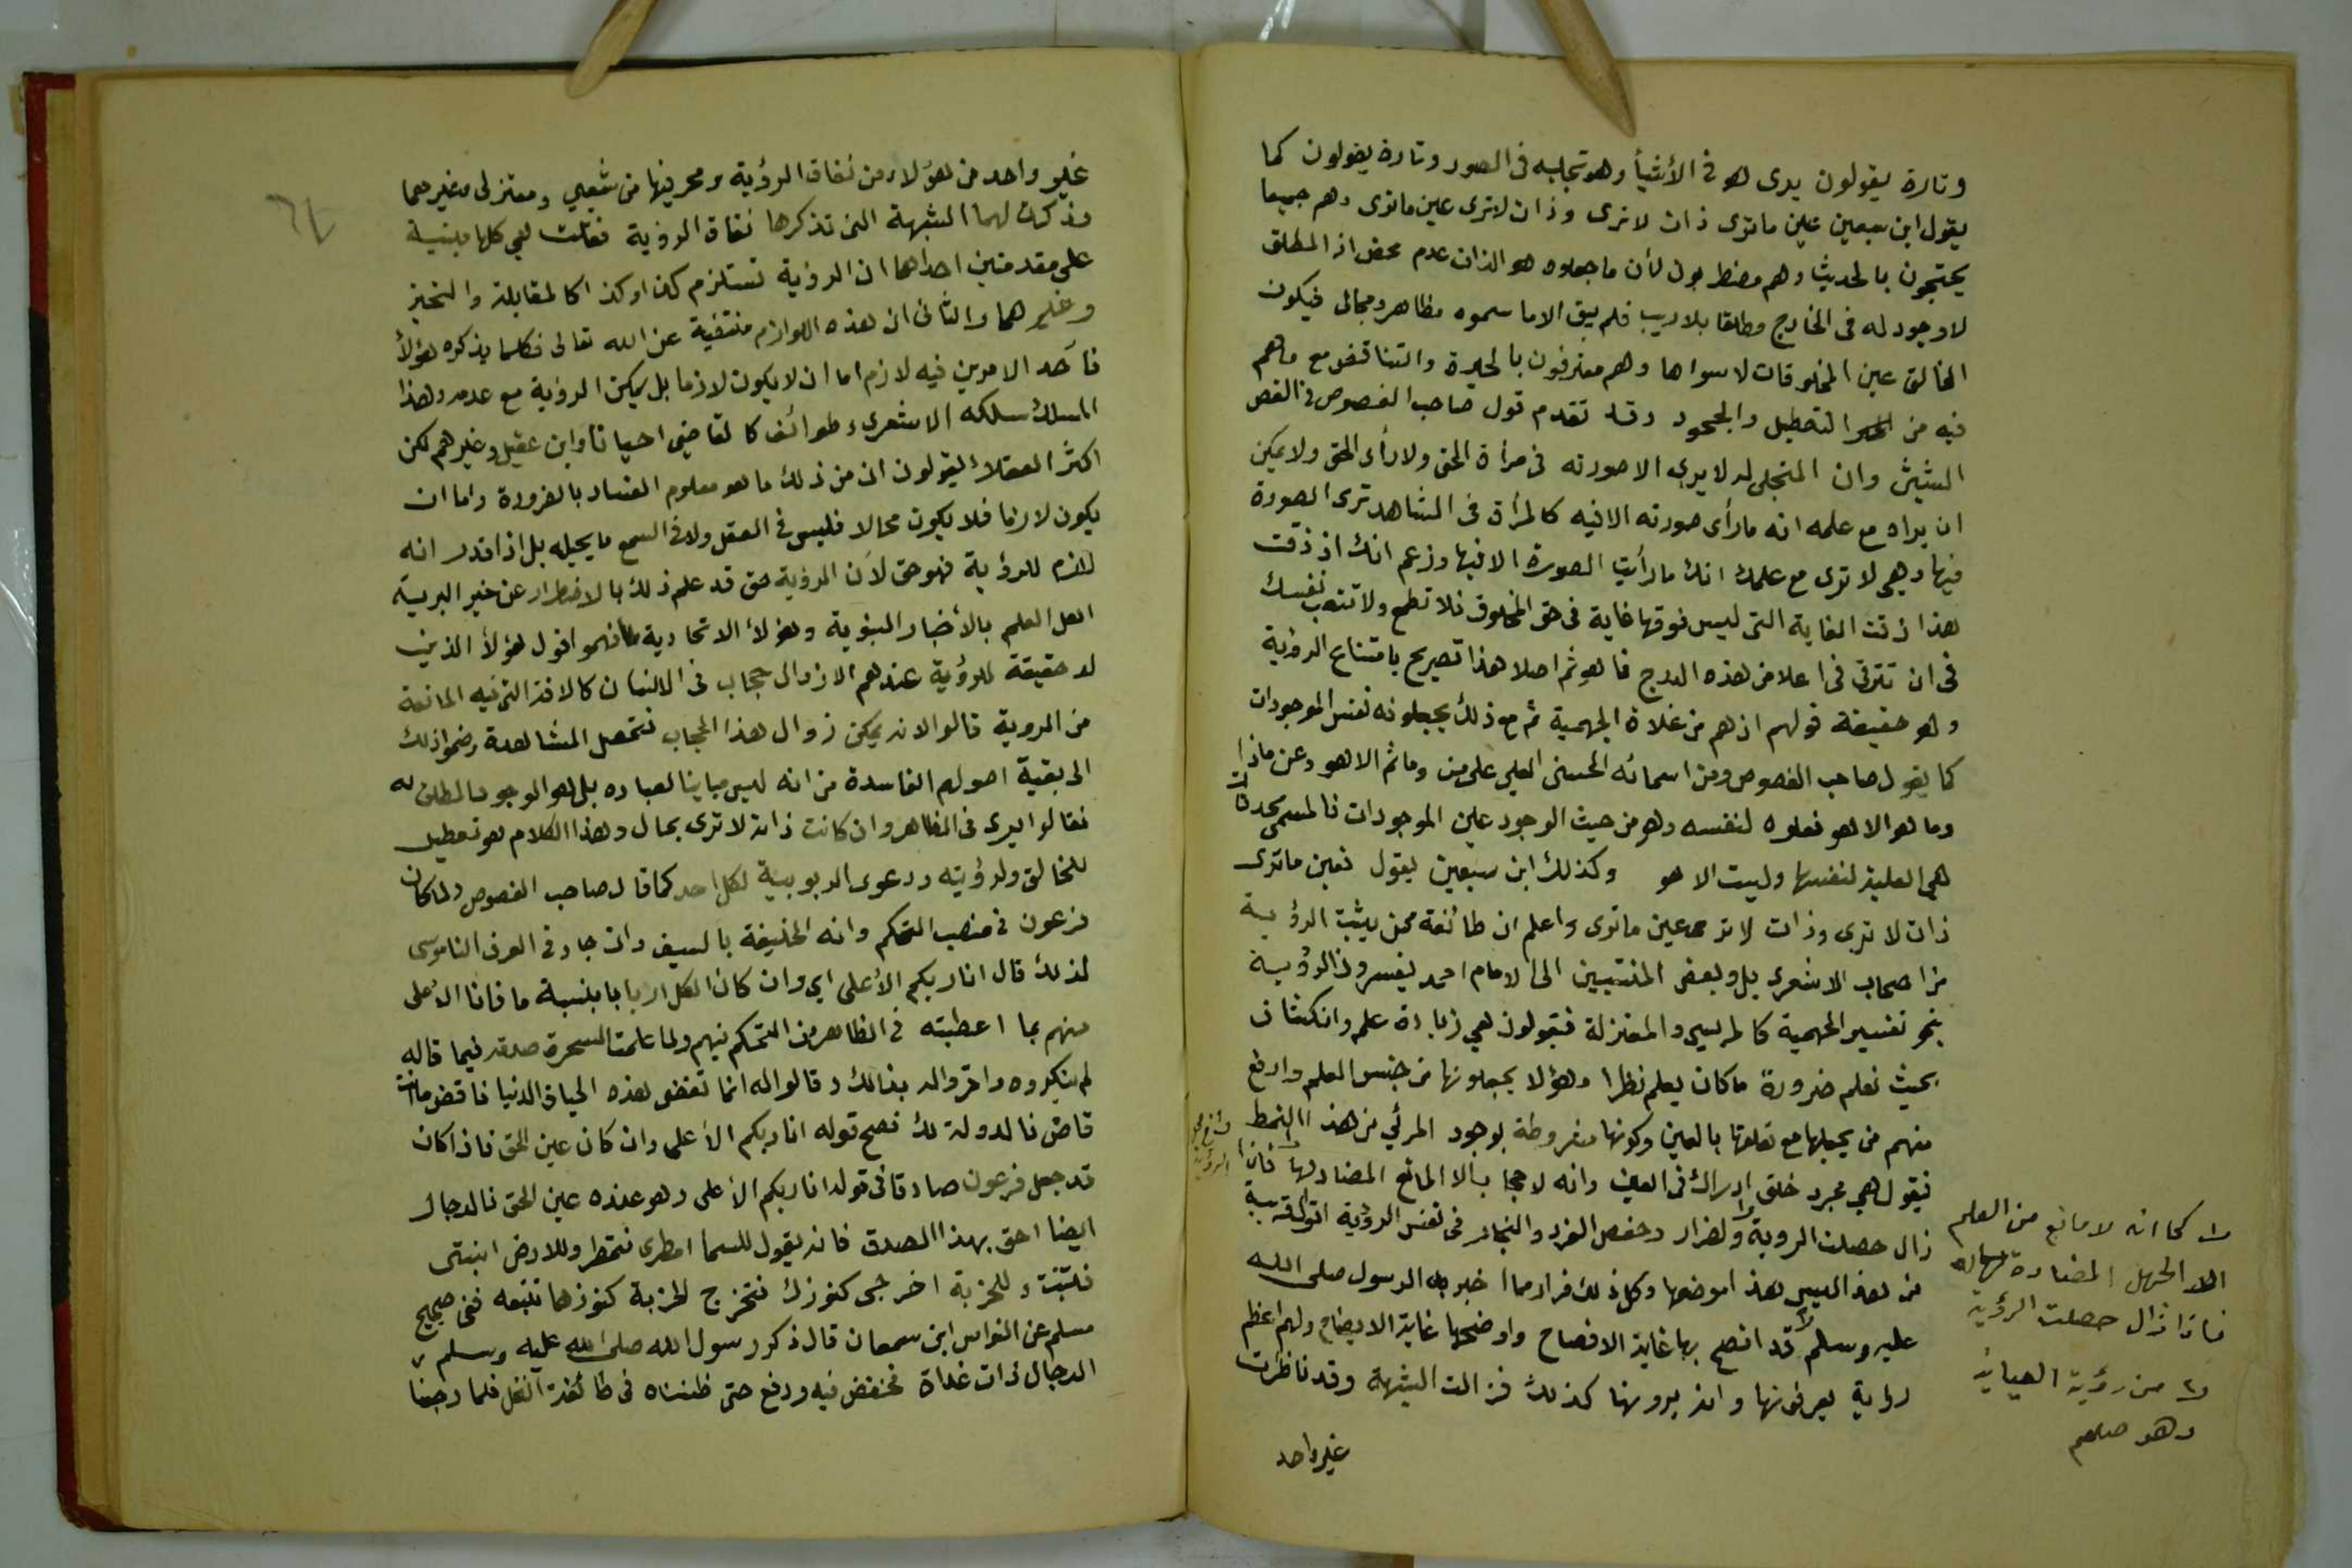 وتارة يقولون يرى هو في الأشيأ وهو تجليه في الصور وتارة يقولون كما
يقول ابن سبعين عين ماترى ذات لا ترى وذات لا ترى عين ماترى وهم جميعا
يحتجون بالحديث وهم مضطربون لأن ما جعلوه هو الذات عدم محض اذ المطلق
لا وجود له في الخارج مطلقا بلا ريب فلم يبق الا ما سموه مظاهر ومجالي فيكون
الخالق عين المخلوقات لا سواها وهم معترفون بالحيرة والتناقض مع ماهم
فيه من التعطيل والجحود وقد تقدم قول صاحب الفصوص في الفص
الشيثي وان المتجلى له لا يرى الا صورته في مرأة الحق ولا رأى الحق ولا يمكن
ان يراه مع علمه انه ما رأى صورته الا فيه كالمرأة في المشاهد ترى الصورة
فيها وهي لا ترى مع علمك انك ما رأيت الصورة الا فيها وزعم انك اذ ذقت
هذا ذقت الغاية التي ليس فوقها غاية في حق المخلوق فلا تطمع ولا تتعب نفسك
في ان تترقى في اعلا من هذه الدرج فما هو ثم اصلا هذا تصريح بامتناع الرؤية
وهو حقيقة قولهم اذ هم من غلاة الجهمية ثم مع ذلك يجعلونه نفس الموجودات
كما يقول صاحب الفصوص ومن اسمائه الحسنى العلي على من وما ثم الا هو وعن ماذا
وما هو الا هو فعلوه لنفسه وهو من حيث الوجود عين الموجودات فالمسمى محدثات
هي العلية لنفسها وليست الا هو وكذلك ابن سبعين يقول فعين ماترى
ذات لا ترى وذات لا ترى عين ماترى واعلم ان طائفة ممن يثبت الرؤية
من اصحاب الاشعري بل وبعض المنتسبين الى الامام احمد يفسرون الرؤية
بنحو تفسير الجهمية كالمريسي والمعتزلة فيقولون هي زيادة علم وانكشاف
بحيث نعلم ضرورة ما كان يعلم نظرا وهؤلا يجعلونها من جنس العلم وارفع
منهم من يجعلها مع تعلقها بالعين وكونها مشروطة بوجود المرئي من هذا النمط
فيقول هي مجرد خلق ادراك في العين وانه لا حجابا الا المانع المضاد لها فاذا
زال حصلت الروية ولضرار وحفص الفرد والنجار في نفس الرؤية اقوال قريبة
من هذا ليس هذا موضعها وكل ذلك فرار مما اخبر به الرسول صلى الله
عليه وسلم لأنه قد افصح بها غاية الافصاح واوضحها غاية الايضاح ولهم اعظم
رواية يعرفونها وانه يرونها كذلك فزالت الشبهة وقد ناظرت
غير واحد
كما انه لا مانع من العلم
الا الجهل المضادة له
فاذا زال حصلت الرؤية
من رؤية العيانية
وهو صلعم
٦٤
غير واحد من هؤلاء من نفاة الرؤية ومحرفيها من شيعي ومعتزلي وغيرهما
وذكرت لهما الشبهة التي تذكرها نفاة الرؤية فقلت هي كلها مبنية
على مقدمتين احداهما ان الرؤية تستلزم كذا وكذا كالمقابلة والتحيز
وغيرهما والثاني ان هذه اللوازم منتفية عن الله تعالى فكلما يذكره هؤلأ
فأحد الامرين فيه لازم اما ان لا يكون لازما بل يمكن الرؤية مع عدمه وهذا
المسلك سلكه الاشعري وطوائف كالقاضي احيانا وابن عقيل وغيرهم لكن
اكثر العقلاء يقولون ان من ذلك ما هو معلوم الفساد بالضرورة واما ان
يكون لازما فلا يكون محالا فليس في العقل ولا في السمع ما يحيله بل اذا قدر انه
لازم للرؤية فهو حق لأن الرؤية حق قد علم ذلك بالاضطرار عن خير البرية
اهل العلم بالأخبار النبوية وهؤلأ الاتحادية فهموا قول هؤلأ الذين
لا حقيقة للرؤية عندهم الا زوال حجاب في الانسان كالافة التي فيه المانعة
من الروية قالوا لانه يمكن زوال هذا الحجاب فتحصل المشاهدة وضموا ذلك
الى بقية اصولهم الفاسدة من انه ليس مباينا لعباده بل هو الوجود المطلق
فقالوا يرى في المظاهر وان كانت ذاته لا ترى بحال وهذا الكلام هو تعطيل
للخالق ولرؤيته ودعوى الربوبية لكل احد كما قال صاحب الفصوص ولما كان
فرعون في منصب التحكم وانه الخليفة بالسيف وان جار في العرف الناموسى
لذلك قال انا ربكم الأعلى اي وان كان الكل اربابا بنسبة ما فانا الأعلى
منهم بما اعطيته في الظاهر من التحكم فيهم ولما علمت السحرة صدقه فيما قاله
لم ينكروه واقروا له بذالك وقالوا له انما تقضى هذه الحياة الدنيا فاقض ما انت
قاض فالدولة لك فصح قوله انا ربكم الأعلى وان كان عين الحق فاذا كان
قد جعل فرعون صادقا في قوله انا ربكم الأعلى وهو عنده عين الحق فالدجال
ايضا احق بهذا الصدق فانه يقول للسما امطرى فتمطر وللارض انبتى
فتنبت وللخربة اخرجى كنوزك فتخرج الخربة كنوزها تتبعه ففى صحيح
مسلم عن النواس ابن سمعان قال ذكر رسول الله صلى الله عليه وسلم
الدجال ذات غداة فخفض فيه ورفع حتى ظنناه في طائفة النخل فلما رحنا